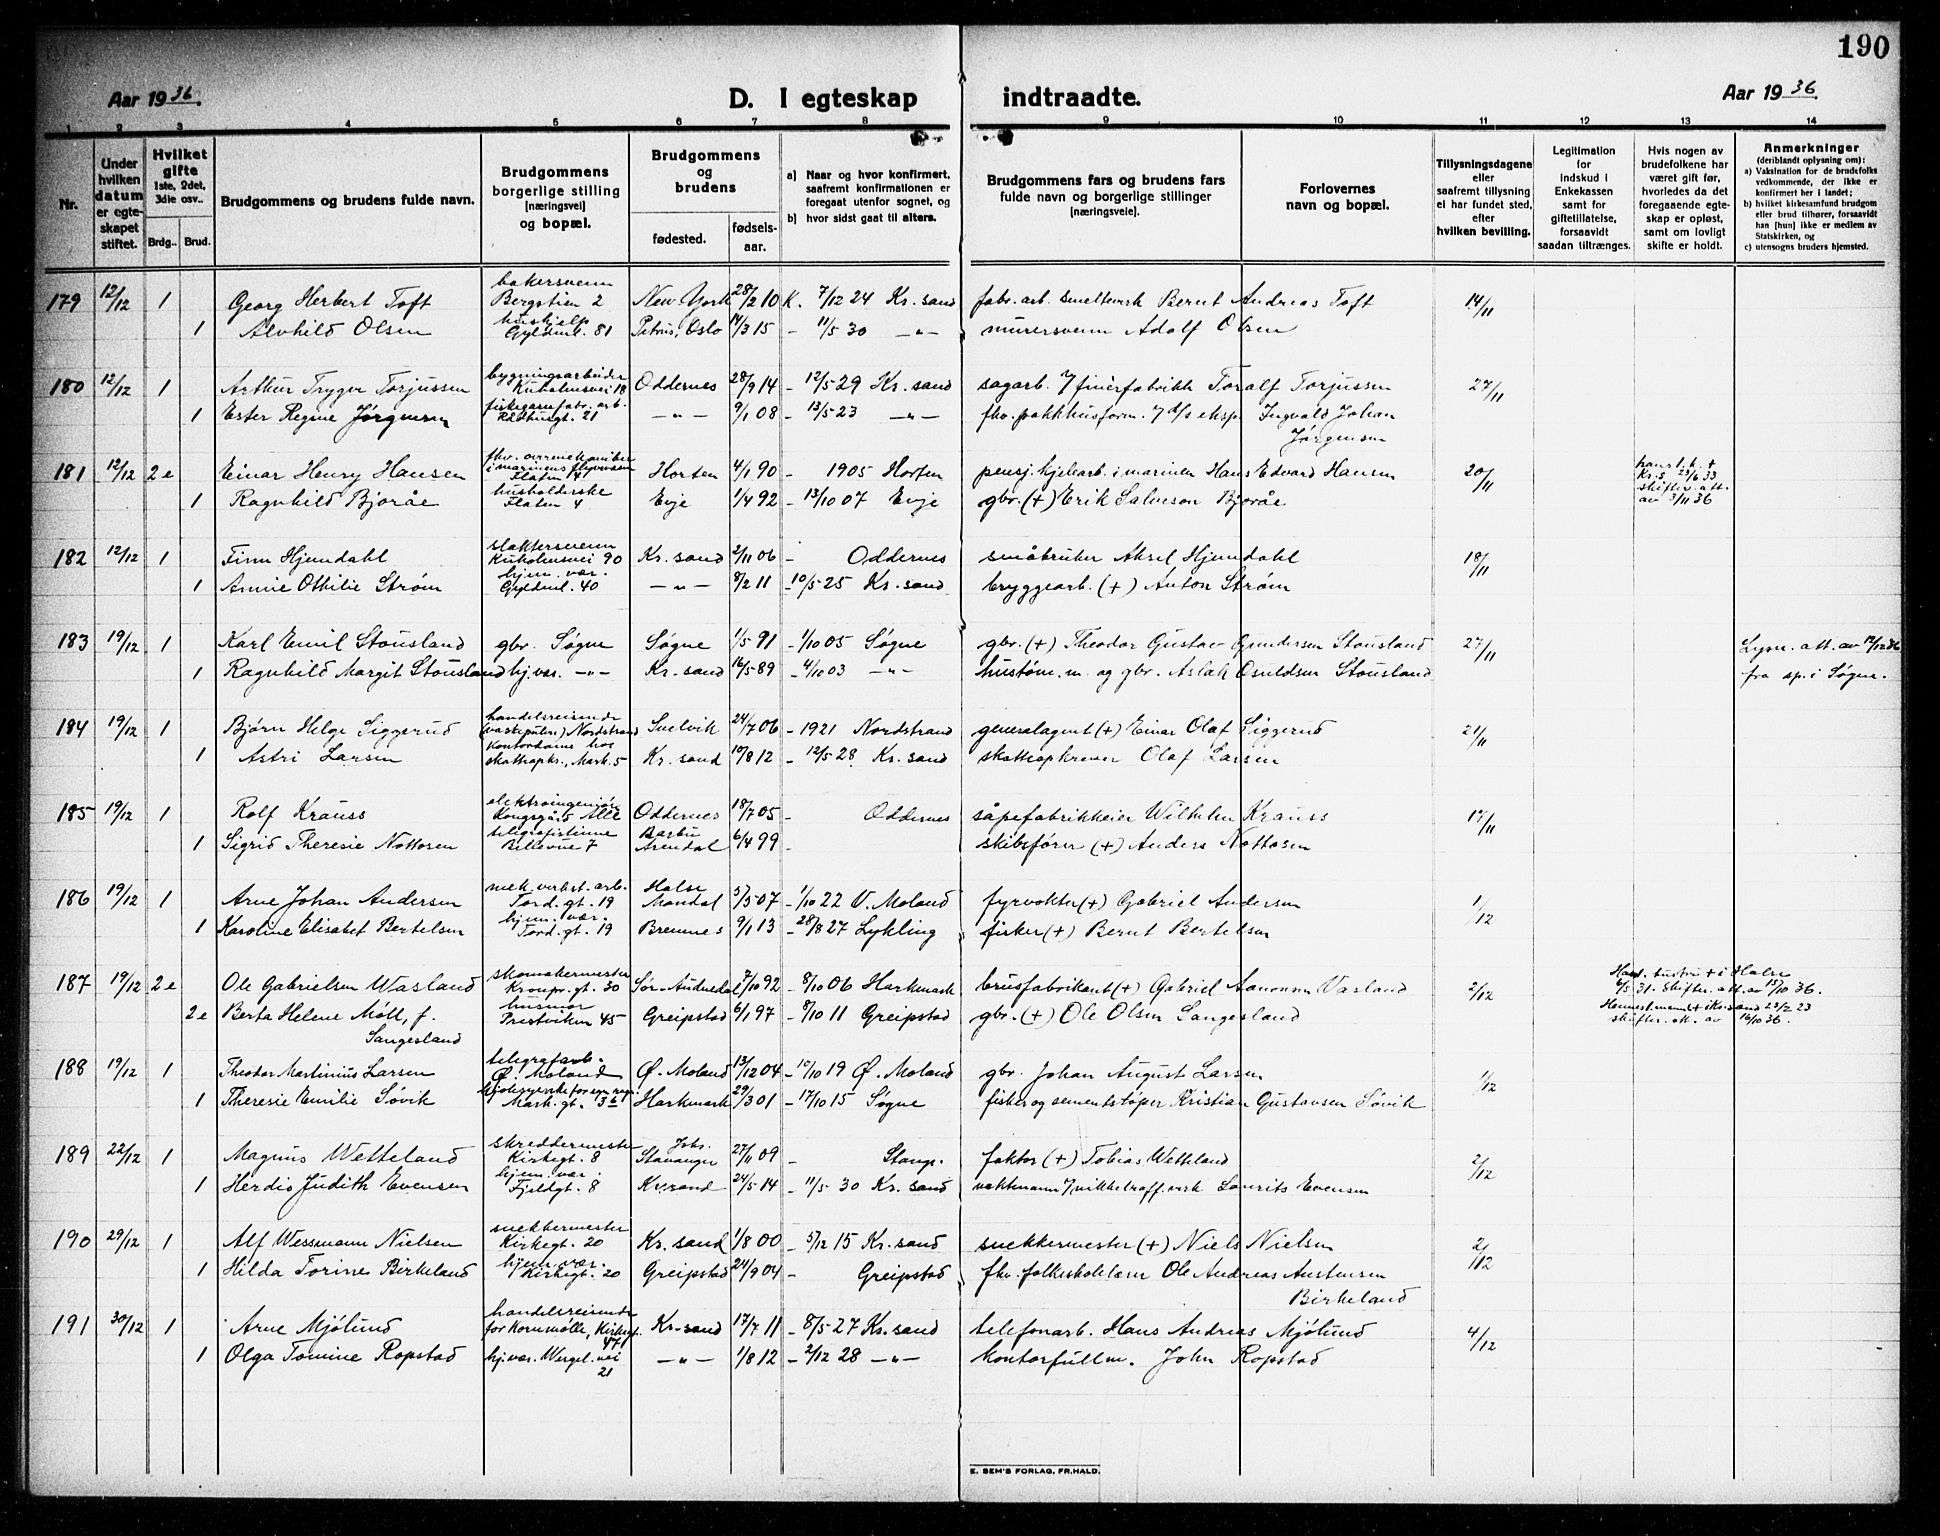 190
Aar 1936. D. I egteskap indtraadte. Aar 1936.
1 2 3 4 5 6 7 8 9 10 11 12 13 14
Nr.
Under hvilken datum er egteskapet stiftet.
Hvilket gifte 1ste, 2det, 3die osv.. Brdg.. Brud.
Brudgommens og brudens fulde navn.
Brudgommens borgerlige stilling [næringsvei] og bopæl.
Brudgommens og brudens fødested. fødsels-aar.
a) Naar og hvor konfirmert, saafremt konfirmationen er foregaat utenfor sognet, og
b) hvor sidst gaat til alters.
Brudgommens fars og brudens fars fulde navn og borgerlige stillinger [næringsveie].
Forlovernes navn og bopæl.
Tillysningsdagene eller saafremt tillysning ei har fundet sted, efter hvilken bevilling.
Legitimation for indskud i Enkekassen samt for giftetillatelse, forsaavidt saadan tiltrænges.
Hvis nogen av brudefolkene har været gift før, hvorledes da det foregaaende egteskap er opløst, samt om lovligt skifte er holdt.
Anmerkninger (deriblandt oplysning om): a) Vaksination for de brudefolks vedkommende, der ikke er konfirmert her i landet; b) hvilket kirkesamfund brudgom eller brud tilhører, forsaavidt han [hun] ikke er medlem av Statskirken, og c) utensogns bruders hjemsted.
179 12/12 1 Georg Herbert Toft bakersvenn Bergstien 2 New York 28/2 10 K. 7/12 24 Kr.sand fabr. arb. smelteverk Bernt Andreas Toft 14/11
1 Alvhild Olsen hushjelp Gyldenl. 81 Petrus, Oslo 14/3 15 - 11/5 30 -"- murersvenn Adolf Olsen
180 12/12 1 Arthur Trygve Torjussen bygningsarbeider Kuholmsvei 18 Oddernes 28/9 14 - 12/5 29 Kr. sand sagarb. v/ finérfabrikk Toralf Torjussen 27/11
1 Ester Regine Jørgensen fiskegarnfabr. arb. Rådhusgt. 21 -"- 9/1 08 - 13/5 23 -"- fhv. pakkhusform. v/ d/s eksp. Ingvald Johan
Jørgensen
181 12/12 2e Einar Henry Hansen fhv. overmekaniker i marinens flyvevesen Flaten 4 Horten 4/1 90 - 1905 Horten pensj. kjelearb. i marinen Hans Edvard Hansen 20/11 hans 1. h. + Kr.s 23/6 33 skifter. att. av 3/11 36
1 Ragnhild Bjoråe husholderske Flaten 4 Evje 1/4 92 - 13/10 07 Evje gbr. (+) Erik Salveson Bjoråe
182 12/12 1 Finn Hjemdahl slaktersvenn Kuholmsvei 90 Kr. sand 2/11 06 - Oddernes småbruker Aksel Hjemdahl 18/11
1 Annie Othilie Strøm hjem. vær. Gyldenl. 40 -"- 8/2 11 - 10/5 25 Kr. sand bryggearb. (+) Anton Strøm
183 19/12 1 Karl Emil Stousland gbr. Søgne Søgne 1/5 91 - 1/10 05 Søgne gbr. (+) Theodor Gustav Gundersen Stousland 27/11 Lysn. att. av 12/12 36
1 Ragnhild Margit Stousland hj. vær. -"- Kr. sand 16/5 89 - 4/10 03 -"- hustøm. m. og gbr. Aslak Osuldsen Stousland fra sp. i Søgne.
184 19/12 1 Bjørn Helge Siggerud handelsreisende (vaskepulver) Nordstrand Svelvik 24/7 06 - 1921 Nordstrand generalagent (+) Einar Olaf Siggerud 21/11
1 Astri Larsen kontordame hos skatteopkr., Mark. 5 Kr. sand 10/8 12 - 12/5 28 Kr. sand skatteopkrever Olaf Larsen
185 19/12 1 Rolf Krauss elektroingeniør Kongsgård Allé Oddernes 18/7 05 - Oddernes såpefabrikkeier Wilhelm Krauss 17/11
1 Sigrid Theresie Nottosen telegrafistinne Bellevue 7 Barbu Arendal 6/4 99 - skibsfører (+) Anders Nottosen
186 19/12 1 Arne Johan Andersen mek. verkst. arb. Tord. gt. 19 Halse Mandal 5/5 07 - 1/10 22 V. Moland fyrvokter (+) Gabriel Andersen 1/12
1 Karoline Elisabet Bertelsen hjem. vær. Tord. gt. 19 Bremnes 9/1 13 - 28/8 27 Lykling fisker (+) Bernt Bertelsen
187 19/12 2e Ole Gabrielsen Wasland skomakermester Kronpr. gt. 30 Sør-Audnedal 7/10 92 - 8/10 06 Harkmark brusfabrikant (+) Gabriel Aanonsen Vasland 2/12 Hans hustru + i Halse 6/5 31. Skifter. att. av 15/10 36.
2e Berta Helene Møll, f. husmor Prestviken 45 Greipstad 6/1 97 - 8/10 11 Greipstad gbr. (+) Ole Olsen Sangesland Hennes mann + i Kr.sand 22/2 23 skifter. att. av 16/10 36.
Sangesland
188 19/12 1 Theodor Martinius Larsen telegrafarb. Ø. Moland Ø. Moland 13/12 04 - 10/10 19 Ø. Moland gbr. Johan August Larsen 1/12
1 Theresie Emilie Søvik Mark. gt. 3 Harkmark 29/3 01 - 17/10 15 Søgne fisker og sementstøper Kristian Gustavsen Søvik
189 22/12 1 Magnus Wetteland skreddermester Kirkegt. 8 Joh. Stavanger 27/11 09 - Stavgr. faktor (+) Tobias Wetteland 2/12
1 Herdis Judith Evensen hjem. vær. Fjeldgt. 8 Kr.sand 24/5 14 - 11/5 30 Kr. sand vaktmann v/ nikkelraff. verk Laurits Evensen
190 29/12 1 Alf Wessmann Nielsen snekkermester Kirkegt. 20 Kr. sand 1/8 00 - 5/12 15 Kr. sand snekkermester (+) Niels Nielsen 2/12
1 Hilda Torine Birkeland hjem. vær. Kirkegt. 20 Greipstad 24/9 04 - Greipstad fhv. folkeskolelærer Ole Andreas Austensen
Birkeland
191 30/12 1 Arne Mjølund handelsreisende for Kornmølle, Kirkegt. 47 Kr. sand 17/7 11 - 8/5 27 Kr. sand telefonarb. Hans Andreas Mjølund 4/12
1 Olga Tomine Ropstad hj. vær. Wergel. vei 21 -"- 1/8 12 - 2/12 28 -"- kontorfullm. John Ropstad
E. SEM'S FORLAG, FR.HALD.